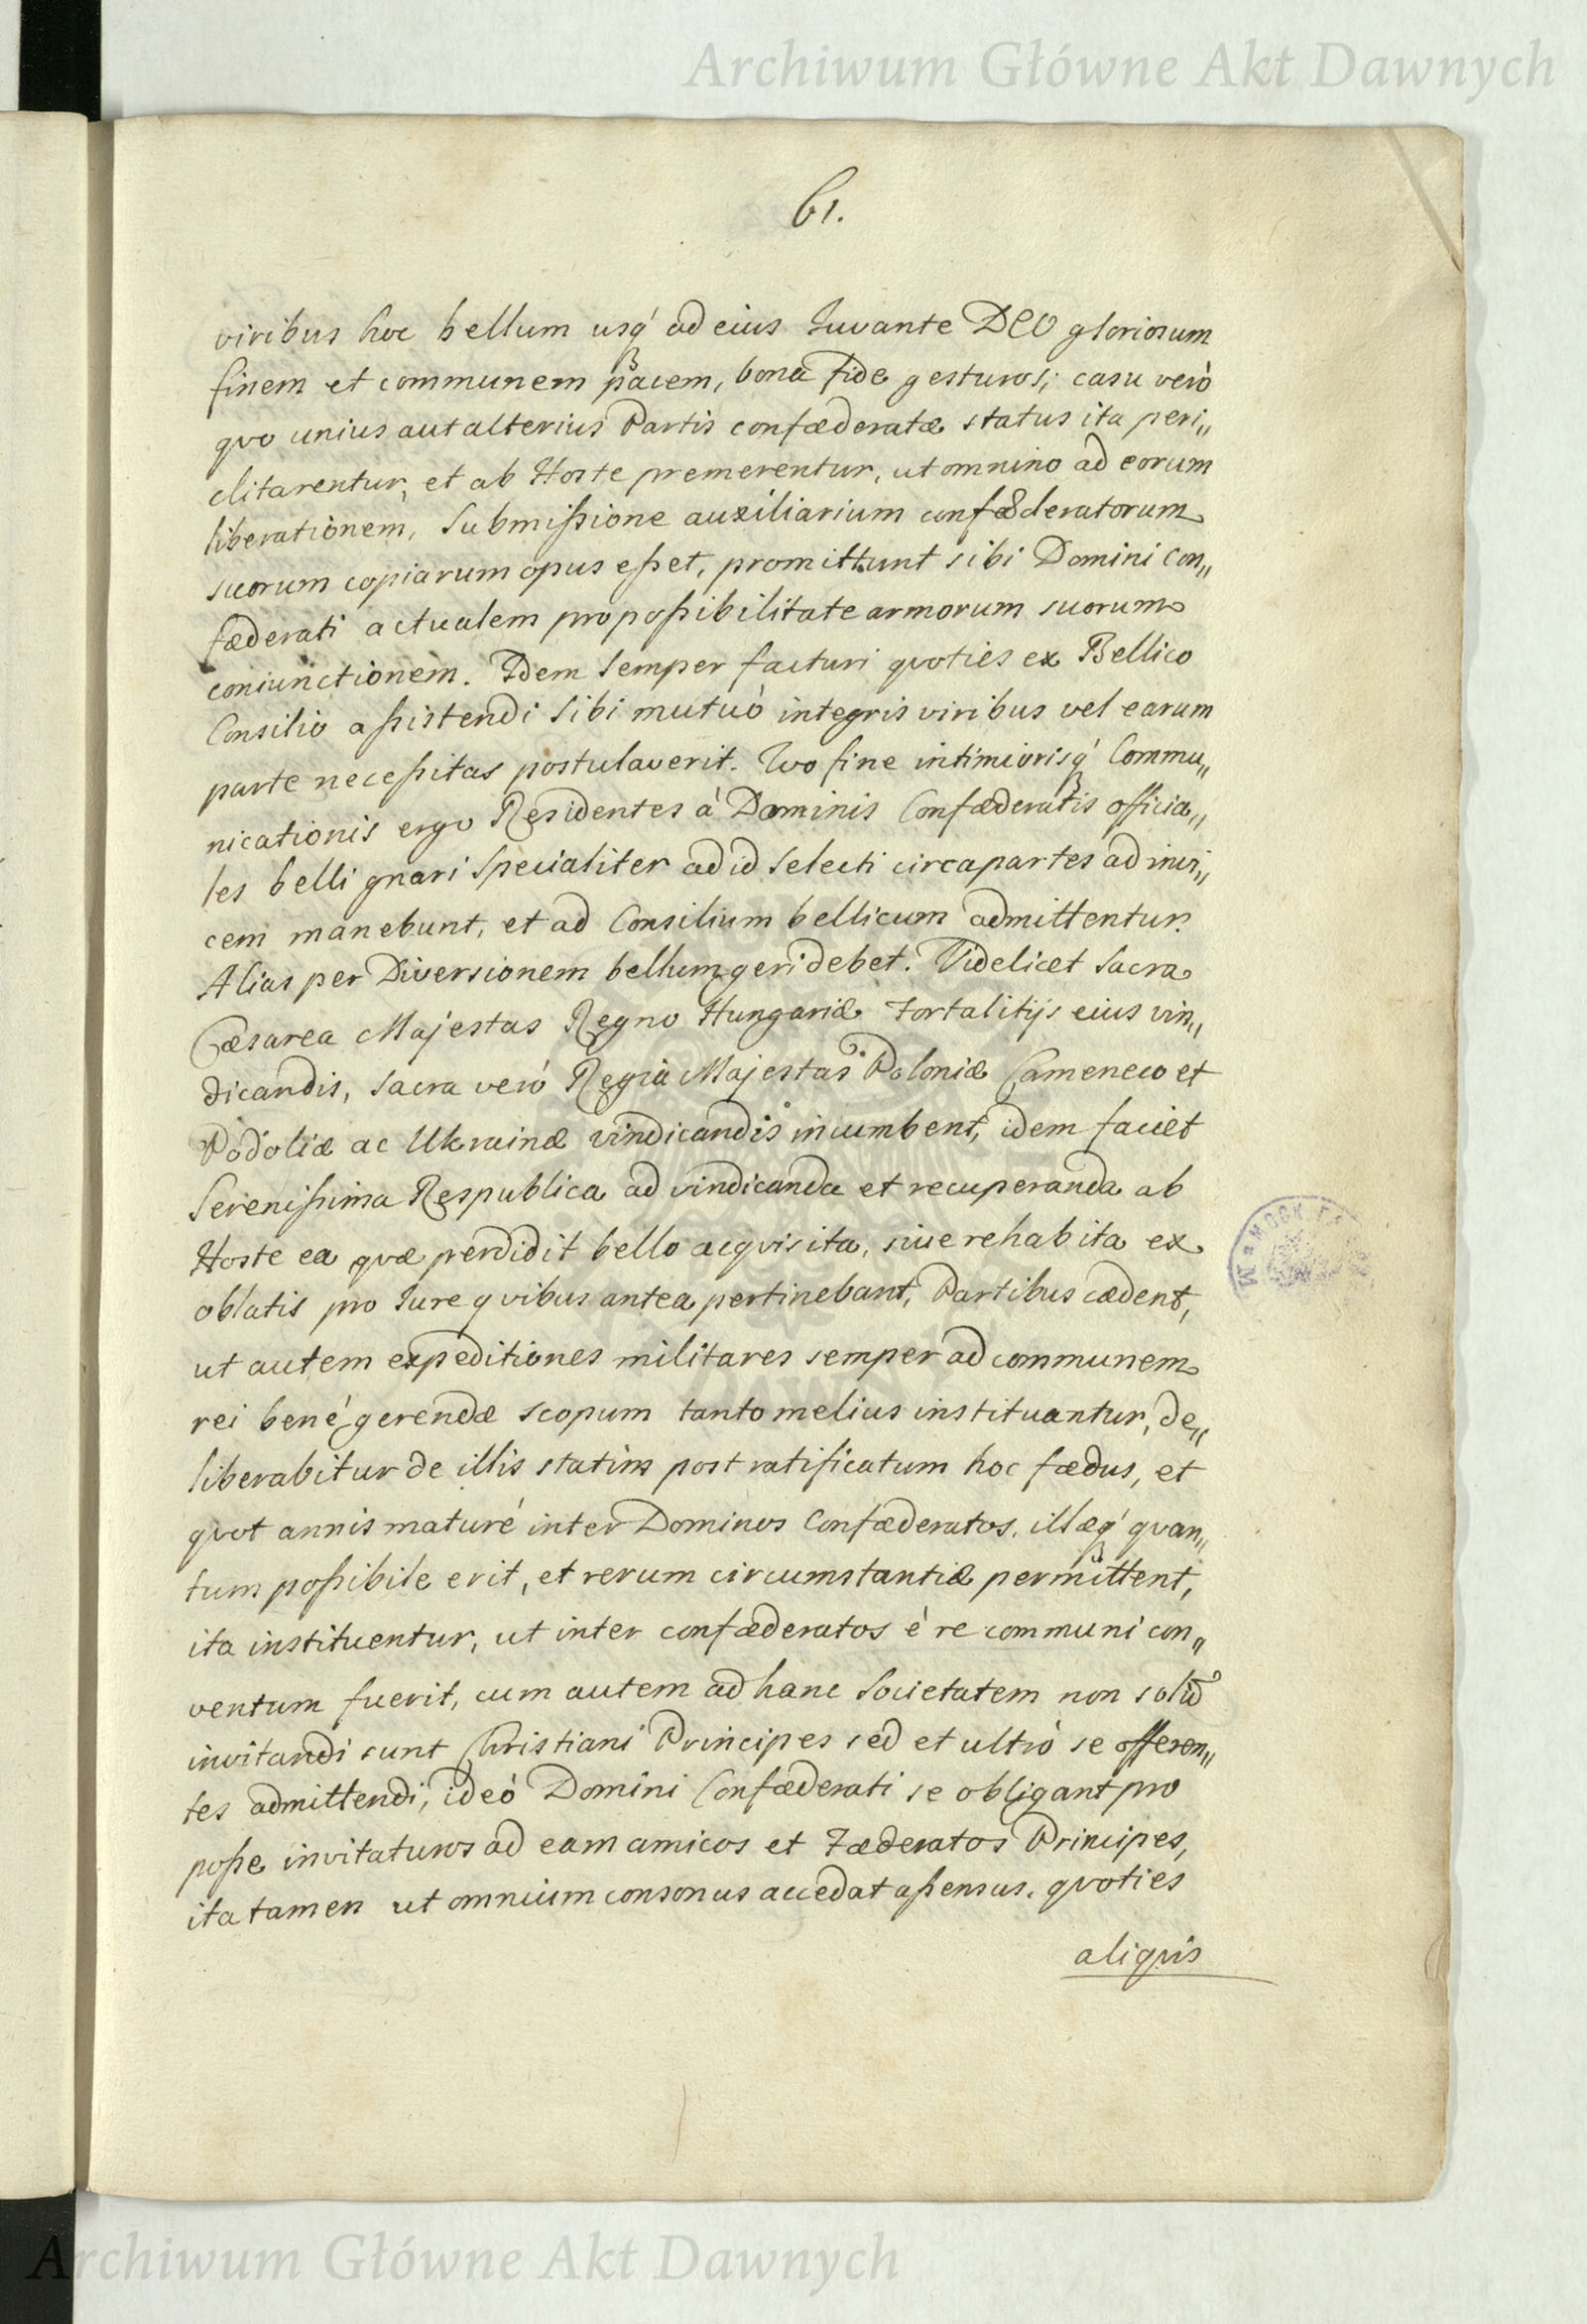 Archiwum Główne Akt Dawnych
61.
viribus hoc bellum usq́ ad eius Iuvante DEO gloriosum
finem et communem pacem, bona fide gesturos; casu verò
quo unius aut alterius Partis confæderatæ status ita peri„
clitarentur, et ab Hoste premerentur, ut omnino ad eorum
liberationem, Submißione auxiliarium confæderatorum
suorum copiarum opus eßet, promittunt sibi Domini Con„
fæderati actualem pro poßibilitate armorum suorum
coniunctionem. Idem Semper facturi quoties ex Bellico
Consilio aßistendi Sibi mutuò integris viribus vel earum
parte neceßitas postulaverit. Quo fine intimiorisq́ Commu„
nicationis ergo Residentes à Dominis Confæderatis officia„
les belli gnari Specialiter ad id Selecti circa partes ad invi„
cem manebunt, et ad Consilium bellicum admittentur.
Alias per Diversionem bellum geri debet. Videlicet Sacra
Cæsarea Majestas Regno Hungariæ Fortalitijs eius vin„
dicandis, Sacra verò Regia Majestas Poloniæ Cameneco et
Podoliæ ac Ukrainæ vindicandis incumbent, idem faciet
Serenißima Respublica ad vindicanda et recuperanda ab
Hoste ea quæ perdidit bello acquisita, sive rehabita ex
oblatis pro Iure quibus antea pertinebant, Partibus cædent,
ut autem expeditiones militares semper ad communem
rei bené gerendæ scopum tanto melius instituantur, de„
liberabitur de illis statim post ratificatum hoc fædus, et
quot annis maturé inter Dominos Confæderatos, illæq́ quan„
tum poßibile erit, et rerum circumstantiæ permittent,
ita instituentur, ut inter confæderatos è re communi con„
ventum fuerit, cum autem ad hanc Societatem non solũ
invitandi sunt Christiani Principes sed et ultrò se offeren„
tes admittendi, ideò Domini Confæderati se obligant pro
poße invitaturos ad eam amicos et Fæderatos Principes,
ita tamen ut omnium consonus accedat aßensus. quoties
aliquis
Archiwum Główne Akt Dawnych